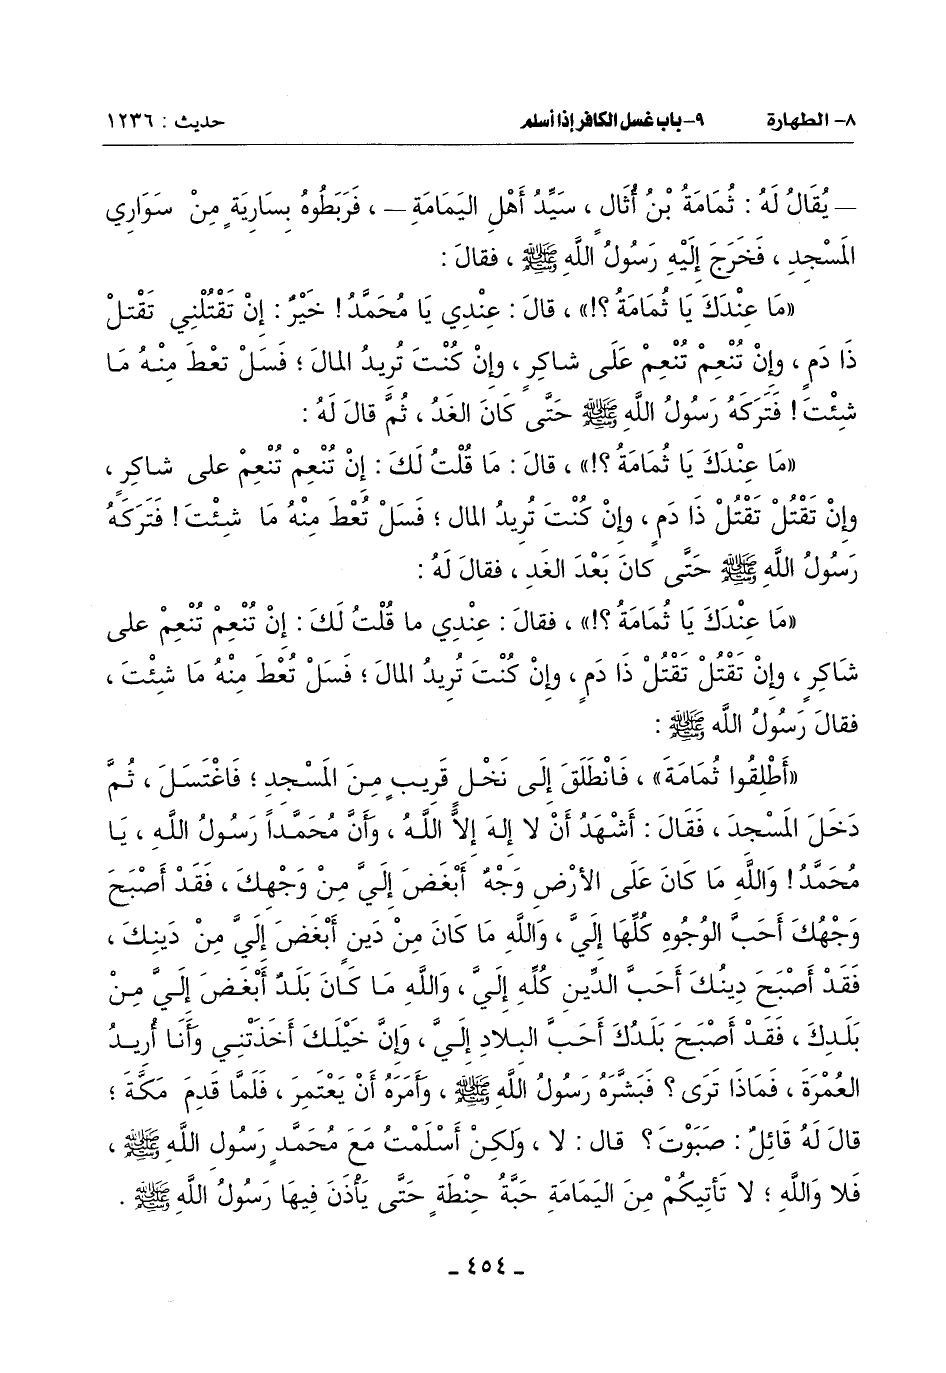 ٨- الطهارة ٩- باب غسل الكافر إذا أسلم حديث : ١٢٣٦
— يُقَالُ لَهُ : ثُمَامَةُ بْنُ أُثَالٍ ، سَيِّدُ أَهْلِ اليَمَامَةِ — ، فَرَبَطُوهُ بِسَارِيَةٍ مِنْ سَوَارِي
المَسْجِدِ ، فَخَرَجَ إِلَيْهِ رَسُولُ اللَّهِ ﷺ ، فقالَ :
«مَا عِنْدَكَ يَا ثُمَامَةُ ؟!» ، قالَ : عِنْدِي يَا مُحَمَّدُ ! خَيْرٌ : إِنْ تَقْتُلْنِي تَقْتلْ
ذَا دَمٍ ، وإِنْ تُنْعِمْ تُنْعِمْ عَلَى شاكِرٍ ، وإِنْ كُنْتَ تُرِيدُ المالَ ؛ فَسَلْ تعْطَ مِنْهُ مَا
شئْتَ ! فَتَرَكَهُ رَسُولُ اللَّهِ ﷺ حَتَّى كَانَ الغَدُ ، ثُمَّ قالَ لَهُ :
«مَا عِنْدَكَ يَا ثُمَامَةُ ؟!» ، قالَ : مَا قُلْتُ لَكَ : إِنْ تُنْعِمْ تُنْعِمْ على شاكِرٍ ،
وإِنْ تَقْتُلْ تَقْتُلْ ذَا دَمٍ ، وإِنْ كُنْتَ تُرِيدُ المال ؛ فَسَلْ تُعْطَ مِنْهُ مَا شِئْتَ ! فَتَرَكَهُ
رَسُولُ اللَّهِ ﷺ حَتَّى كانَ بَعْدَ الغَدِ ، فقالَ لَهُ :
«مَا عِنْدَكَ يَا ثُمَامَةُ ؟!» ، فقالَ : عِنْدِي ما قُلْتُ لَكَ : إِنْ تُنْعِمْ تُنْعِمْ على
شَاكِرٍ ، وإِنْ تَقْتُلْ تَقْتُلْ ذَا دَمٍ ، وإِنْ كُنْتَ تُرِيدُ المَالَ ؛ فَسَلْ تُعْطَ مِنْهُ مَا شِئْتَ ،
فقالَ رَسُولُ اللَّهِ ﷺ :
«أَطْلِقُوا ثُمَامَةَ» ، فَانْطَلَقَ إِلَى نَخْلٍ قَرِيبٍ مِنَ المَسْجِدِ ؛ فَاغْتَسَلَ ، ثُمَّ
دَخَلَ المَسْجِدَ ، فَقَالَ : أَشْهَدُ أَنْ لا إِلهَ إِلاَّ اللَّهُ ، وأَنَّ مُحَمَّداً رَسُولُ اللَّهِ ، يَا
مُحَمَّدُ ! وَاللَّهِ مَا كَانَ عَلَى الأَرْضِ وَجْهٌ أَبْغَضَ إِلَيَّ مِنْ وَجْهِكَ ، فَقَدْ أَصْبَحَ
وَجْهُكَ أَحَبَّ الوُجُوهِ كُلِّهَا إِلَيَّ ، وَاللَّهِ مَا كَانَ مِنْ دَينٍ أَبْغَضَ إِلَيَّ مِنْ دَيِنِكَ ،
فَقَدْ أَصْبَحَ دِينُكَ أَحَبَّ الدِّينِ كُلِّهِ إِلَيَّ ، وَاللَّهِ مَا كَانَ بَلَدٌ أَبْغَضَ إِلَيَّ مِنْ
بَلَدِكَ ، فَقَدْ أَصْبَحَ بَلَدُكَ أَحَبَّ البِلادِ إِلَيَّ ، وَإِنَّ خَيْلَكَ أَخَذَتْنِي وَأَنَا أُرِيدُ
العُمْرَةَ ، فَمَاذَا تَرَى ؟ فَبَشَّرَهُ رَسُولُ اللَّهِ ﷺ ، وَأَمَرَهُ أَنْ يَعْتَمِرَ ، فَلَمَّا قَدِمَ مَكَّةَ ؛
قالَ لَهُ قَائِلٌ : صَبَوْتَ ؟ قال : لا ، وَلكِنْ أَسْلَمْتُ مَعَ مُحَمَّدٍ رَسولِ اللَّهِ ﷺ ،
فَلا وَاللَّهِ ؛ لا تَأْتِيكُمْ مِنَ اليَمَامَةِ حَبَّةُ حِنْطَةٍ حَتَّى يَأْذَنَ فِيهَا رَسُولُ اللَّهِ ﷺ .
ـ ٤٥٤ ـ